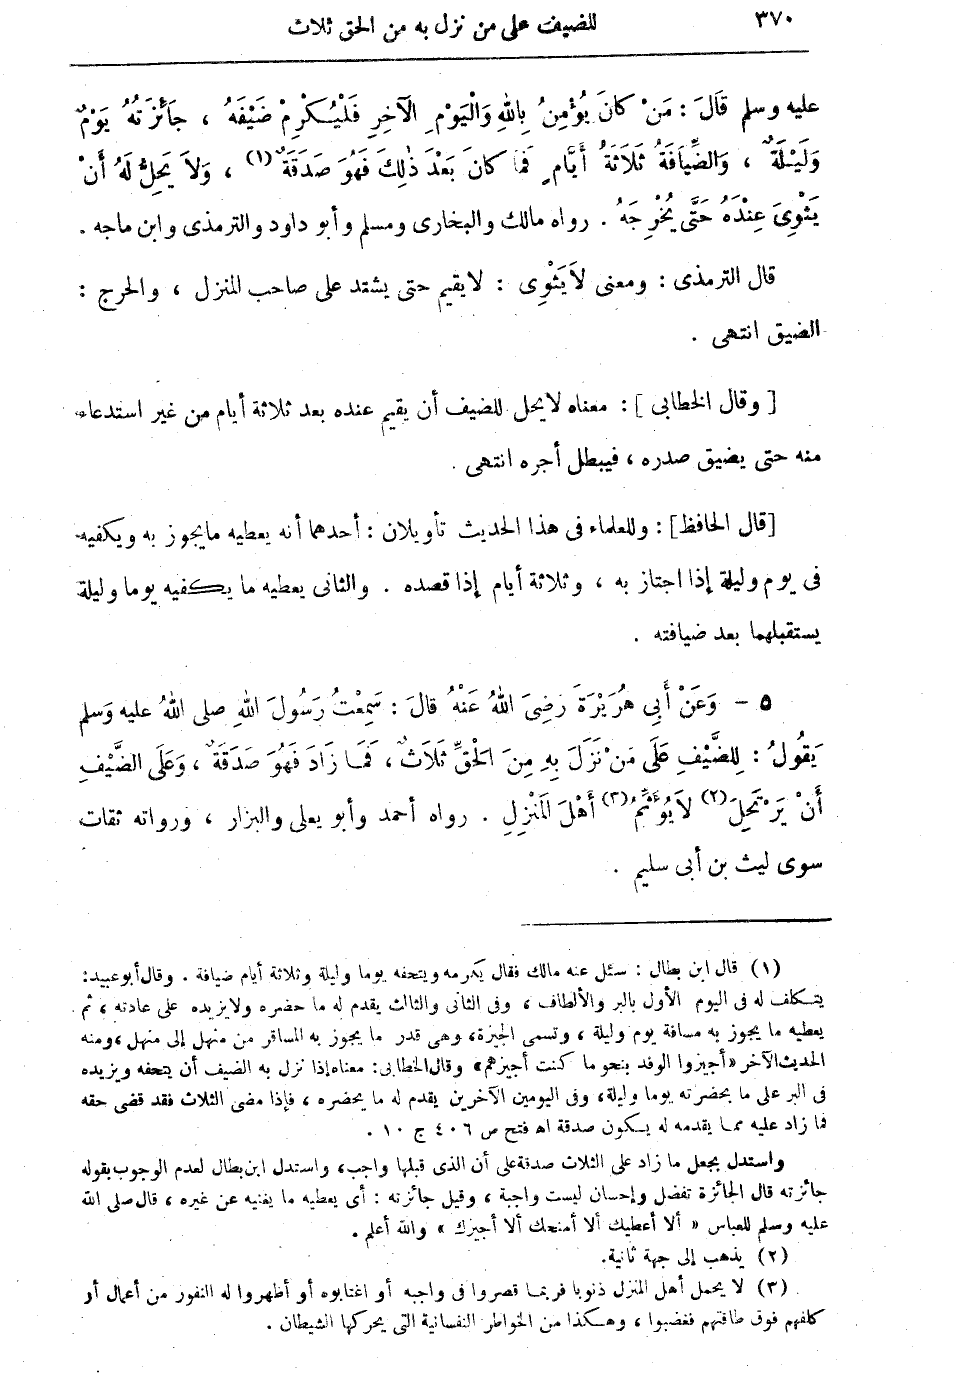 ٣٧٠ للضيف على من نزل به من الحق ثلاث
عليه وسلم قَالَ : مَنْ كَانَ يُؤْمِنُ بِاللهِ وَالْيَوْمِ الْآخِرِ فَلْيُكْرِمْ ضَيْفَهُ ، جَائِزَتُهُ يَوْمٌ
وَلَيْلَةٌ ، وَالضِّيَافَةُ ثَلَاثَةُ أَيَّامٍ فَمَا كَانَ بَعْدَ ذٰلِكَ فَهُوَ صَدَقَةٌ (١) ، وَلاَ يَحِلُّ لَهُ أَنْ
يَثْوِىَ عِنْدَهُ حَتَّى يُخْرِجَهُ . رواه مالك والبخارى ومسلم وأبو داود والترمذى وابن ماجه .
قال الترمذى : ومعنى لاَيَثْوِى : لايقيم حتى يشتد على صاحب المنزل ، والحرج :
الضيق انتهى .
[ وقال الخطابى ] : معناه لايحل للضيف أن يقيم عنده بعد ثلاثة أيام من غير استدعاء
منه حتى يضيق صدره ، فيبطل أجره انتهى .
[قال الحافظ] : وللعلماء فى هذا الحديث تأويلان : أحدهما أنه يعطيه مايجوز به ويكفيه
فى يوم وليلة إذا اجتاز به ، وثلاثة أيام إذا قصده . والثانى يعطيه ما يكفيه يوما وليلة
يستقبلهما بعد ضيافته .
٥ – وَعَنْ أَبِي هُرَيْرَةَ رَضِىَ اللهُ عَنْهُ قَالَ : سَمِعْتُ رَسُولَ اللهِ صلى اللهُ عليه وَسلم
يَقُولُ : لِلضَّيْفِ عَلَى مَنْ نَزَلَ بِهِ مِنَ الْحَقِّ ثَلَاثٌ ، فَمَا زَادَ فَهُوَ صَدَقَةٌ ، وَعَلَى الضَّيْفِ
أَنْ يَرْتَحِلَ (٢) لاَيُؤَثِّمُ (٣) أَهْلَ الْمَنْزِلِ . رواه أحمد وأبو يعلى والبزار ، ورواته ثقات
سوى ليث بن أبى سليم .
(١) قال ابن بطال : سئل عنه مالك فقال يكرمه ويتحفه يوما وليلة وثلاثة أيام ضيافة . وقال أبو عبيد:
يتكلف له فى اليوم الأول بالبر والألطاف ، وفى الثانى والثالث يقدم له ما حضره ولايزيده على عادته ، ثم
يعطيه ما يجوز به مسافة يوم وليلة ، وتسمى الجيزة، وهى قدر ما يجوز به المسافر من منهل إلى منهل ، ومنه
الحديث الآخر «أجيزوا الوفد بنحو ما كنت أجيزهم» وقال الخطابى: معناه إذا نزل به الضيف أن يتحفه ويزيده
فى البر على ما بحضرته يوما وليلة، وفى اليومين الآخرين يقدم له ما يحضره ، فإذا مضى الثلاث فقد قضى حقه
فما زاد عليه مما يقدمه له يكون صدقة اه فتح ص ٤٠٦ ج ١٠ .
واستدل بجعل ما زاد على الثلاث صدقة على أن الذى قبلها واجب، واستدل ابن بطال لعدم الوجوب بقوله
جائزته قال الجائزة تفضل وإحسان ليست واجبة ، وقيل جائزته : أى يعطيه ما يغنيه عن غيره ، قال صلى الله
عليه وسلم للعباس « ألا أعطيك ألا أمنحك ألا أجيزك » والله أعلم .
(٢) يذهب إلى جهة ثانية.
(٣) لا يحمل أهل المنزل ذنوبا فربما قصروا فى واجبه أو اغتابوه أو أظهروا له النفور من أعمال أو
كلفهم فوق طاقتهم فغضبوا ، وهكذا من الخواطر النفسانية التى يحركها الشيطان .